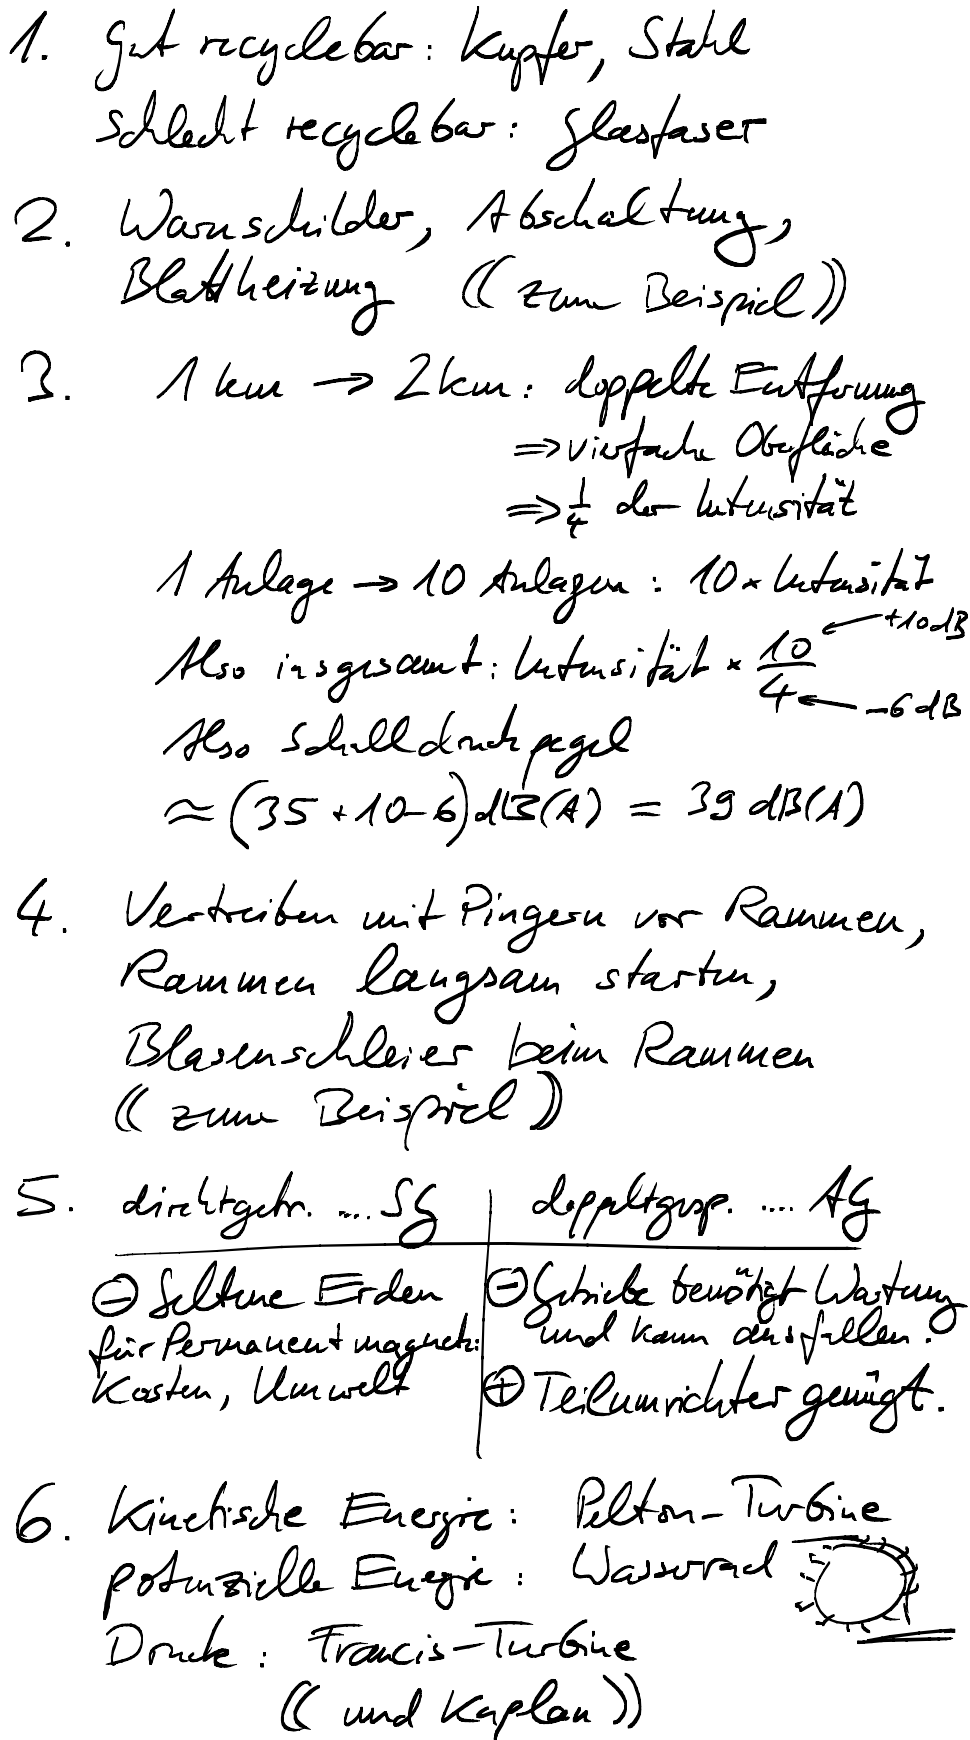 1. Gut recyclebar: Kupfer, Stahl
schlecht recyclebar: Glasfaser
2. Warnschilder, Abschaltung,
Blattheizung ((zum Beispiel))
3. 1 km → 2 km: doppelte Entfernung
⇒ vierfache Oberfläche
⇒ 1/4 der Intensität
1 Anlage → 10 Anlagen: 10 × Intensität
+10 dB
Also insgesamt: Intensität × 10/4
−6 dB
Also Schalldruckpegel
≈ (35 + 10 − 6) dB(A) = 39 dB(A)
4. Vertreiben mit Pingern vor Rammen,
Rammen langsam starten,
Blasenschleier beim Rammen
((zum Beispiel))
5. direktgetr. .... SG | doppeltgesp. .... AG
⊖ Seltene Erden
für Permanentmagnete:
Kosten, Umwelt
⊖ Getriebe benötigt Wartung
und kann ausfallen.
⊕ Teilumrichter genügt.
6. Kinetische Energie: Pelton-Turbine
potenzielle Energie: Wasserrad
Druck: Francis-Turbine
((und Kaplan))